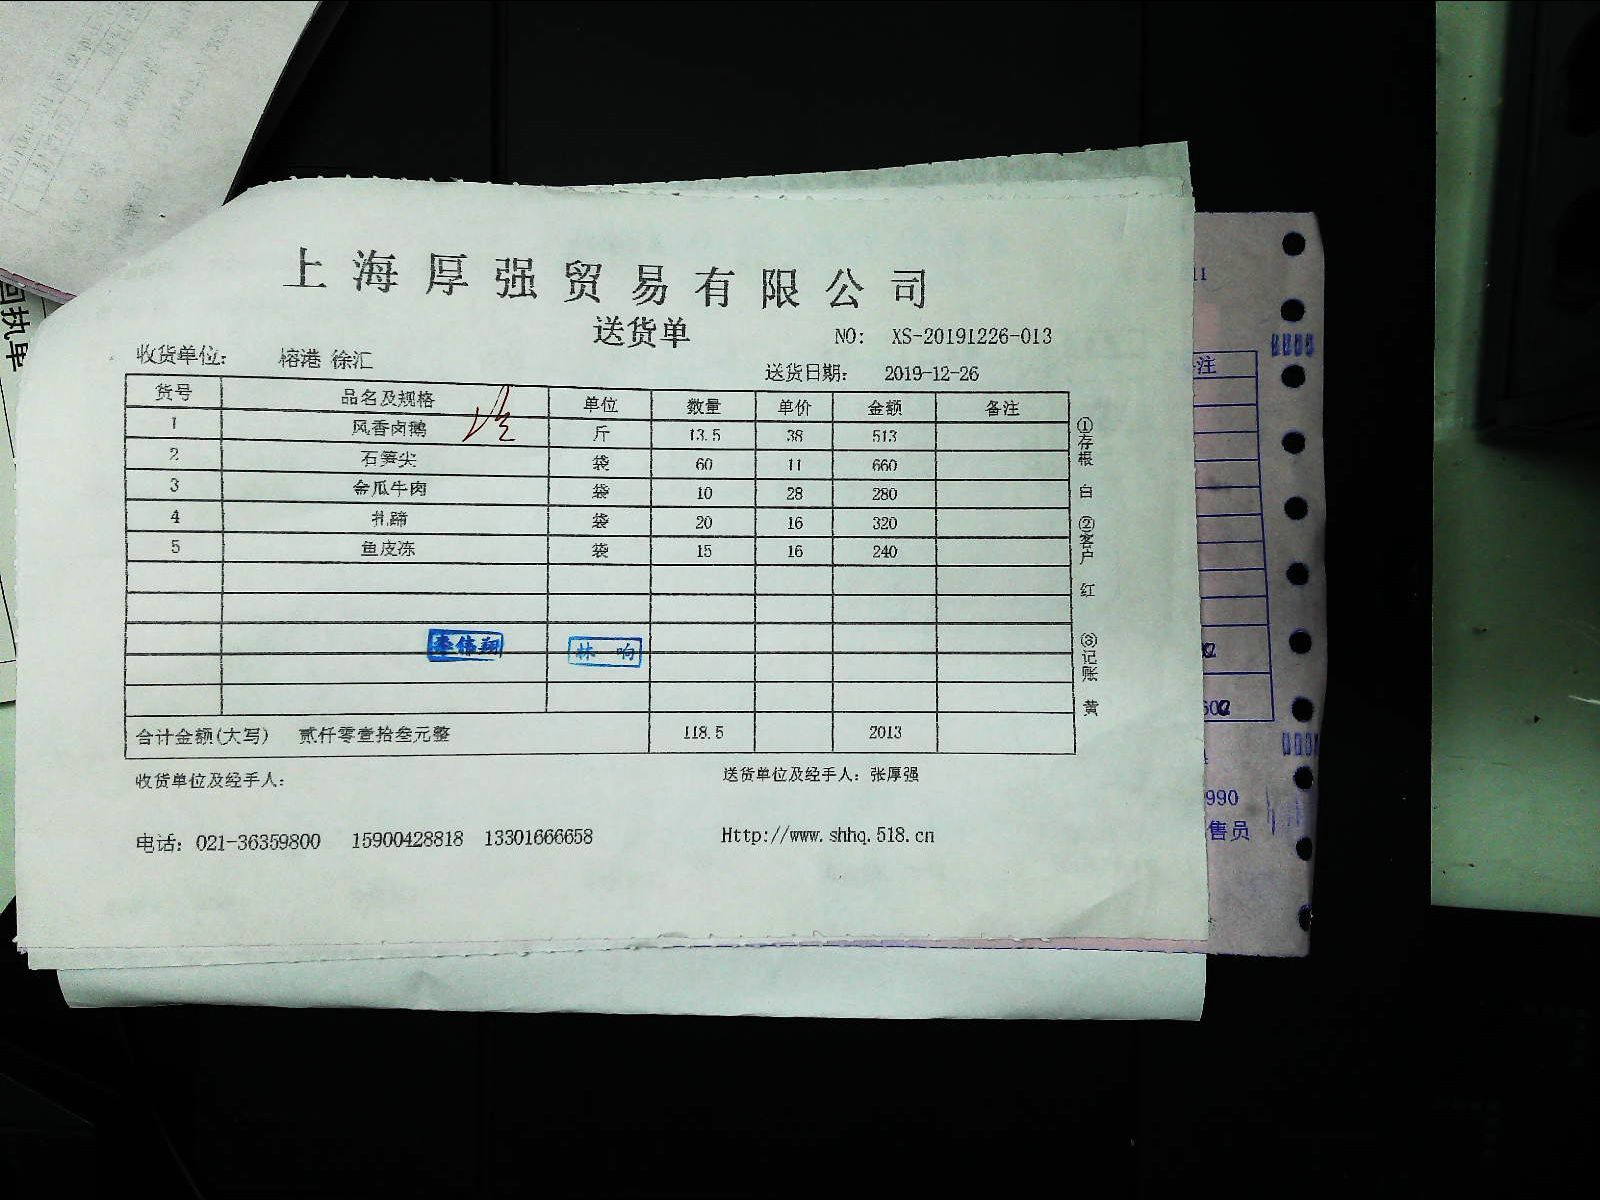 上海厚强贸易有限公司
送货单
NO: XS-20191226-013
收货单位: 榕港 徐汇
送货日期: 2019-12-26
货号 品名及规格 单位 数量 单价 金额 备注
1 风香卤鹅 斤 13.5 38 513
2 石笋尖 袋 60 11 660
3 金瓜牛肉 袋 10 28 280
4 扎蹄 袋 20 16 320
5 鱼皮冻 袋 15 16 240
李伟翔 林响
合计金额(大写) 贰仟零壹拾叁元整 118.5 2013
收货单位及经手人:
送货单位及经手人: 张厚强
电话: 021-36359800 15900428818 13301666658
Http://www.shhq.518.cn
①存根 白 ②客户 红 ③记账 黄
回执单
注
990
售员